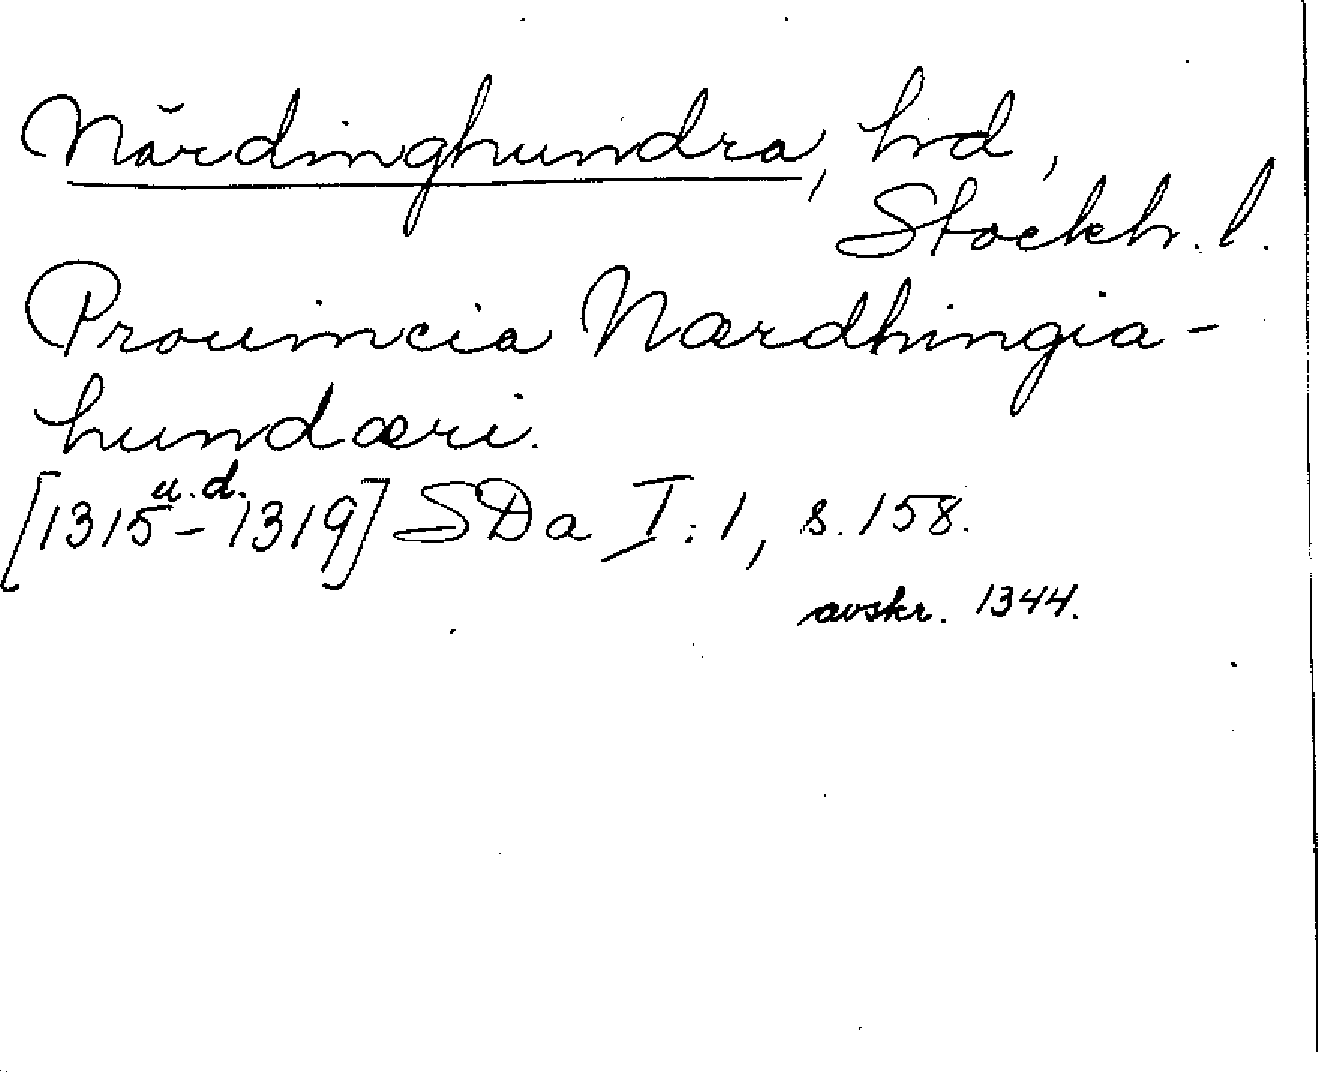 Närdinghundra, hd,
Stockh. l.
Prouincia Nærdhingia-
hundæri.
[1315 u.d. - 1319] SDa I:1, s. 158.
avskr. 1344.